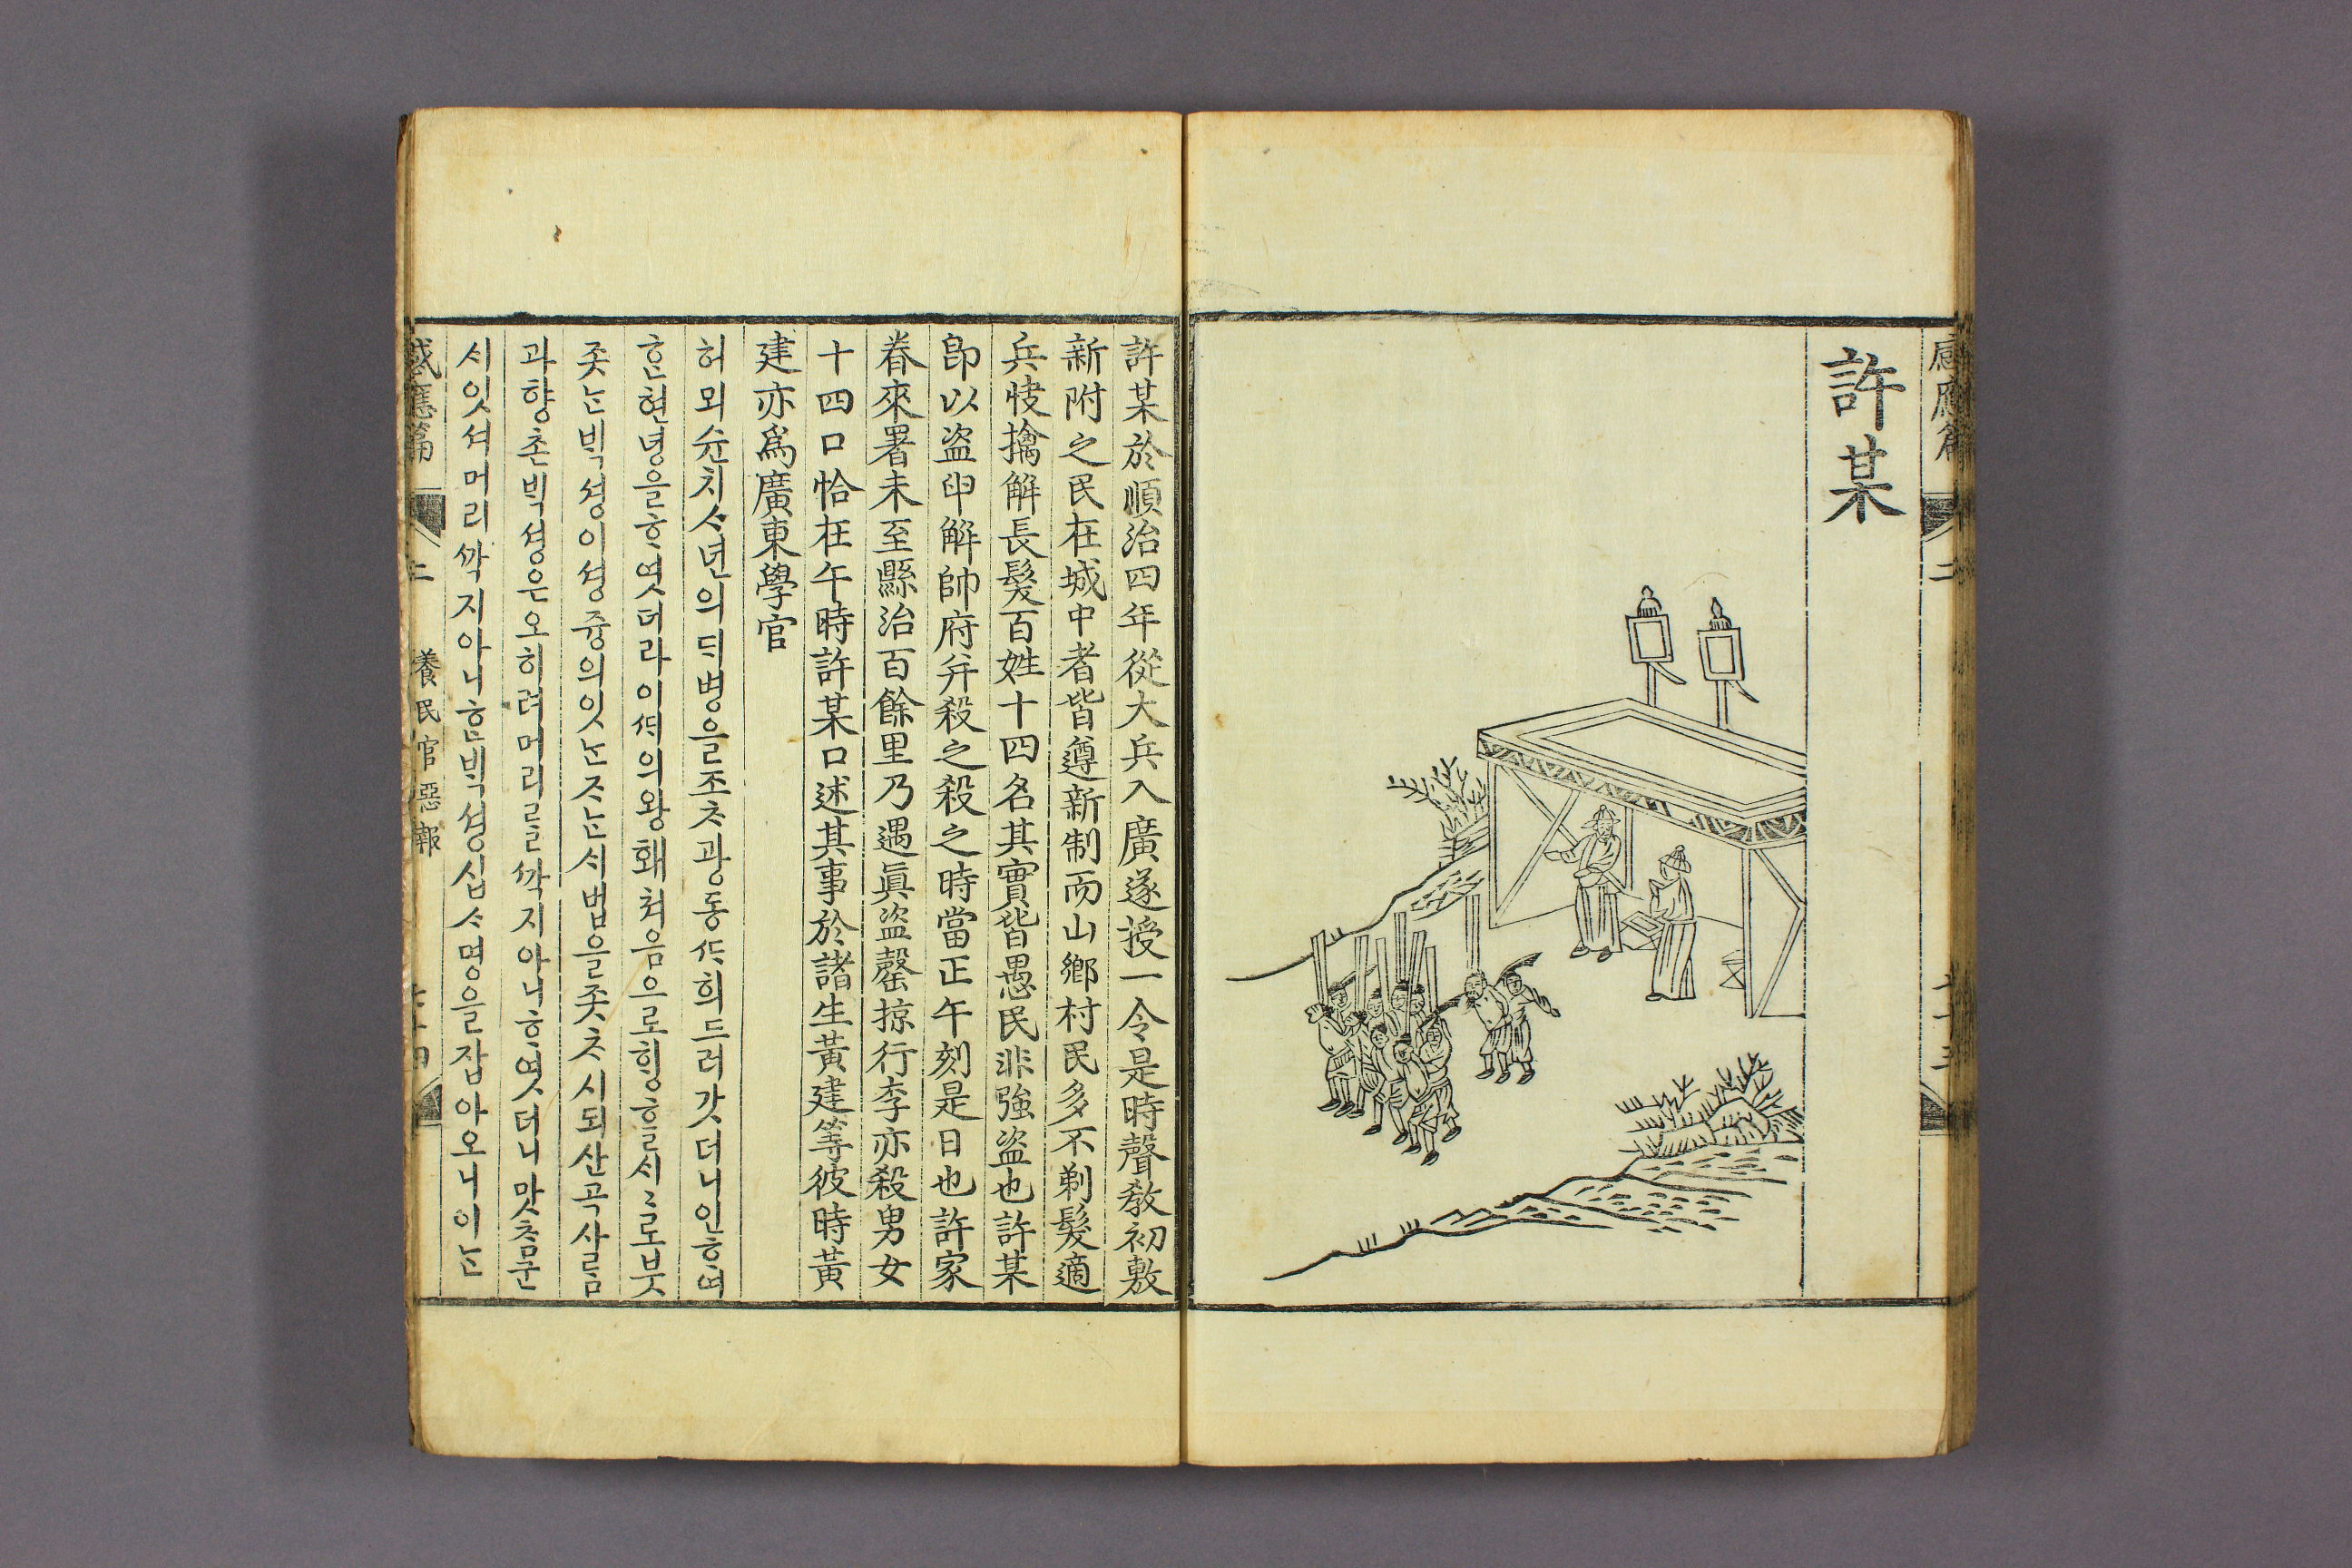 感應篇 二
許某
許某於順治四年從大兵入廣遂授一令是時聲敎初敷
新附之民在城中者皆遵新制而山鄉村民多不剃髮適
兵快擒解長髮百姓十四名其實皆愚民非強盜也許某
卽以盜申解帥府幷殺之殺之時當正午刻是日也許家
眷來署未至縣治百餘里乃遇眞盜罄掠行李亦殺男女
十四口恰在午時許某口述其事於諸生黃建等彼時黃
建亦爲廣東學官
허뫼슌치ᄉᆞ년의ᄃᆡ병을조ᄎᆞ광동ᄯᅡ희드러갓더니인ᄒᆞ여
ᄒᆞᆫ현녕을ᄒᆞ엿더라이ᄯᆡ의왕홰처음으로ᄒᆡᆼᄒᆞᆯᄉᆡᄉᆡ로붓
좃ᄂᆞᆫᄇᆡᆨ셩이셩즁의잇ᄂᆞᆫᄌᆞᄂᆞᆫᄉᆡ법을좃ᄎᆞ시되산곡사ᄅᆞᆷ
과향촌ᄇᆡᆨ셩은오히려머리ᄅᆞᆯ싹지아니ᄒᆞ엿더니맛ᄎᆞᆷ군
시잇셔머리싹지아니ᄒᆞᆫᄇᆡᆨ셩십ᄉᆞ명을잡아오니이ᄂᆞᆫ
感應篇 二 養民官惡報